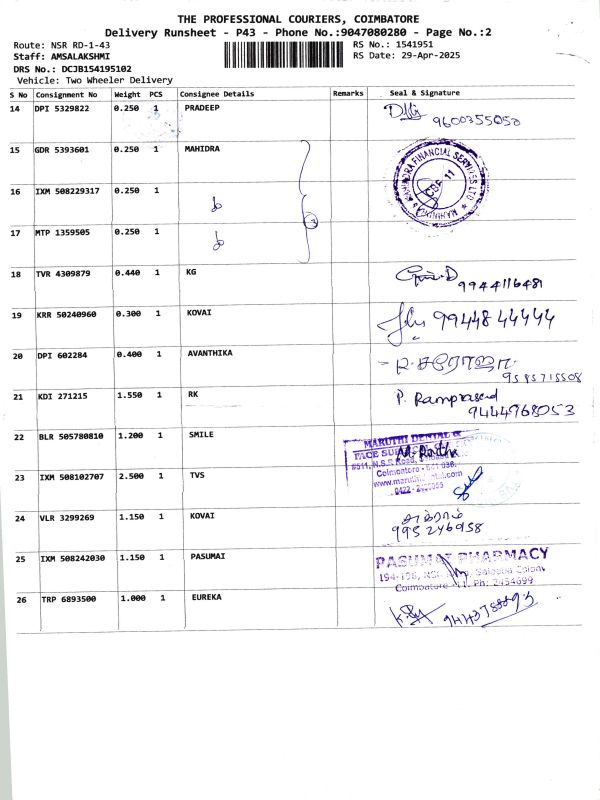 THE PROFESSIONAL COURIERS, COIMBATORE
Delivery Runsheet - P43 - Phone No.:9047080280 - Page No.:2
Route: NSR RD-1-43
RS No.: 1541951
Staff: AMSALAKSHMI
RS Date: 29-Apr-2025
DRS No.: DCJB154195102
Vehicle: Two Wheeler Delivery
S No Consignment No Weight PCS Consignee Details Remarks Seal & Signature
14 DPI 5329822 0.250 1 PRADEEP
9600355050
15 GDR 5393601 0.250 1 MAHIDRA
MAHINDRA & MAHINDRA FINANCIAL SERVICES LTD
16 IXM 508229317 0.250 1
17 MTP 1359505 0.250 1
18 TVR 4309879 0.440 1 KG
9944116481
19 KRR 50240960 0.300 1 KOVAI
9944844444
20 DPI 602284 0.400 1 AVANTHIKA
R. சரோஜா
9585715508
21 KDI 271215 1.550 1 RK
P. Ramprasad
9444968053
22 BLR 505780810 1.200 1 SMILE
MARUTHI DENTAL &
FACE
#511, N.S.R Road,
Coimbatore - 641 038.
23 IXM 508102707 2.500 1 TVS
24 VLR 3299269 1.150 1 KOVAI
995246958
25 IXM 508242030 1.150 1 PASUMAI
PASUMAI PHARMACY
194-196, NSR Saibaba Colony
Coimbatore Ph: 2454699
26 TRP 6893500 1.000 1 EUREKA